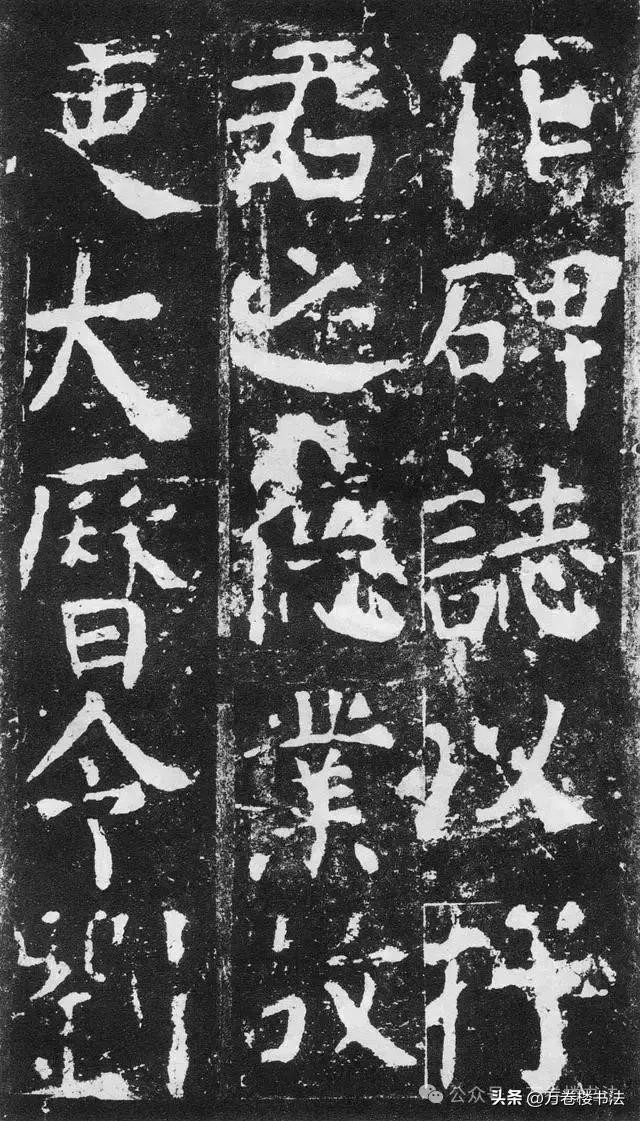 作碑誌以抒
君之德業故
吏大曆令劉
公众号
头条 @万卷楼书法